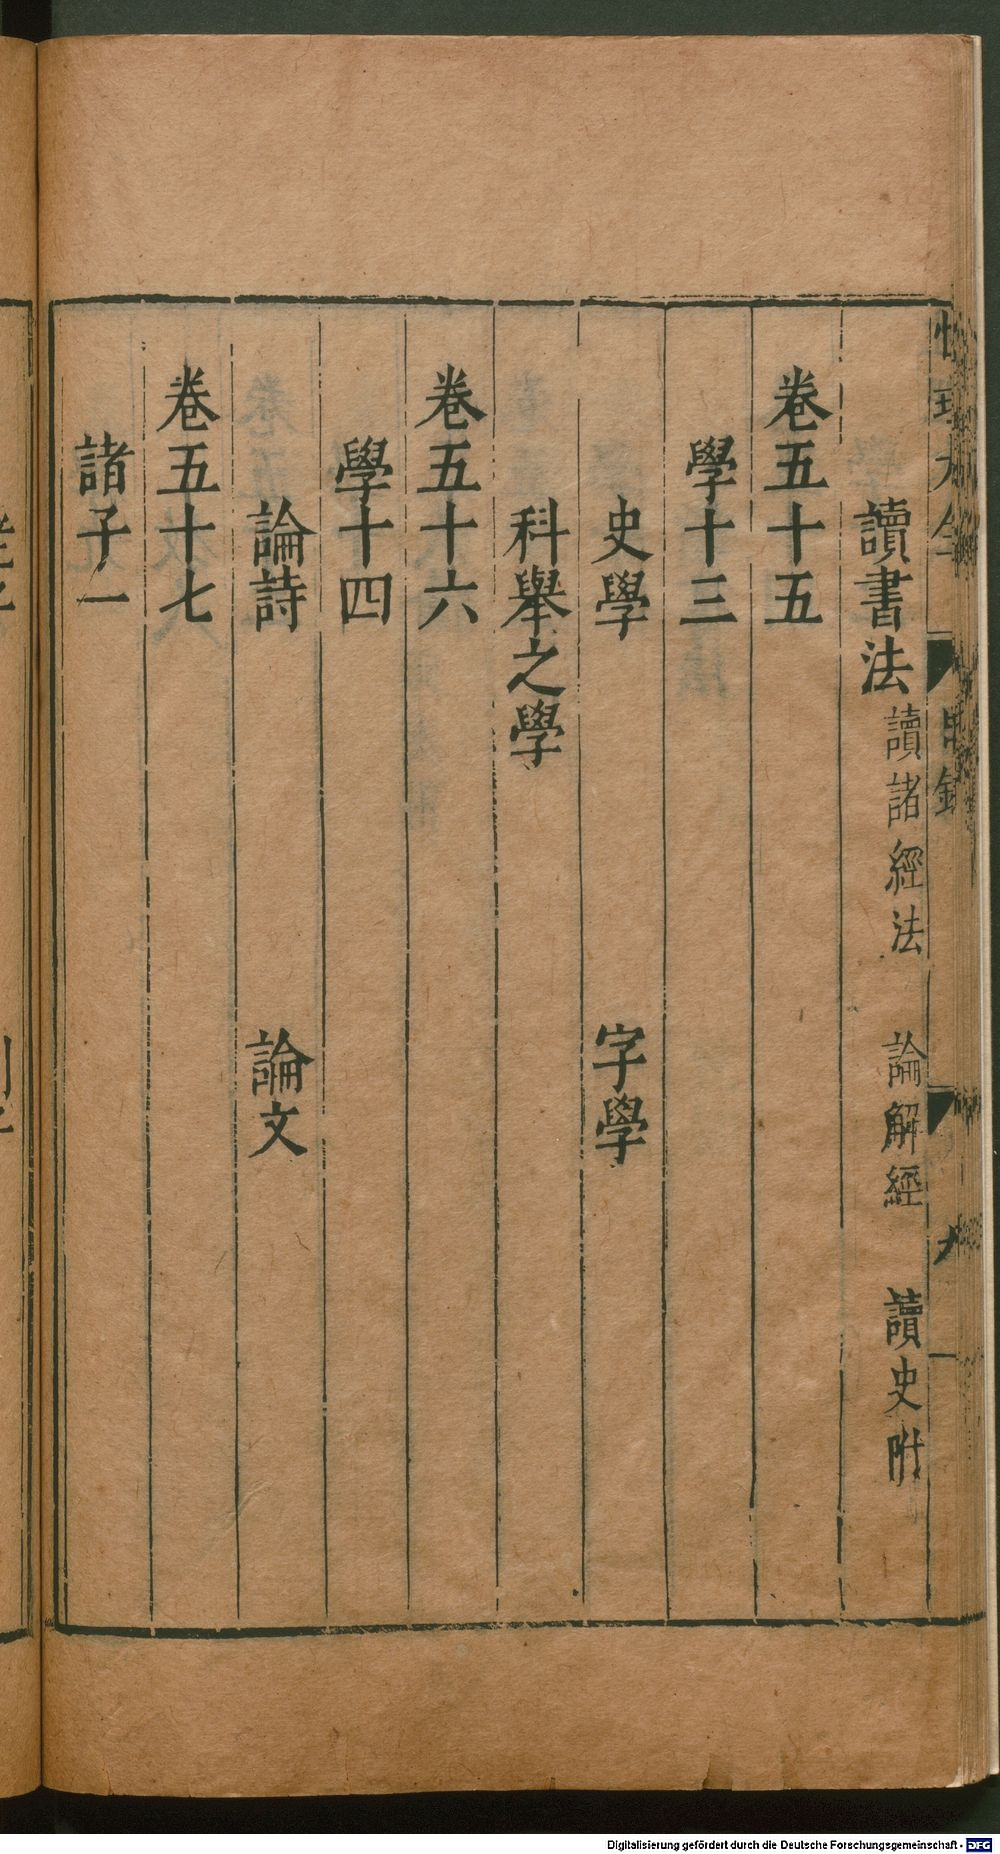 讀書法 讀諸經法 論解經 讀史附
卷五十五
學十三
史學 字學
科舉之學
卷五十六
學十四
論詩 論文
卷五十七
諸子一
Digitalisierung gefördert durch die Deutsche Forschungsgemeinschaft - DFG